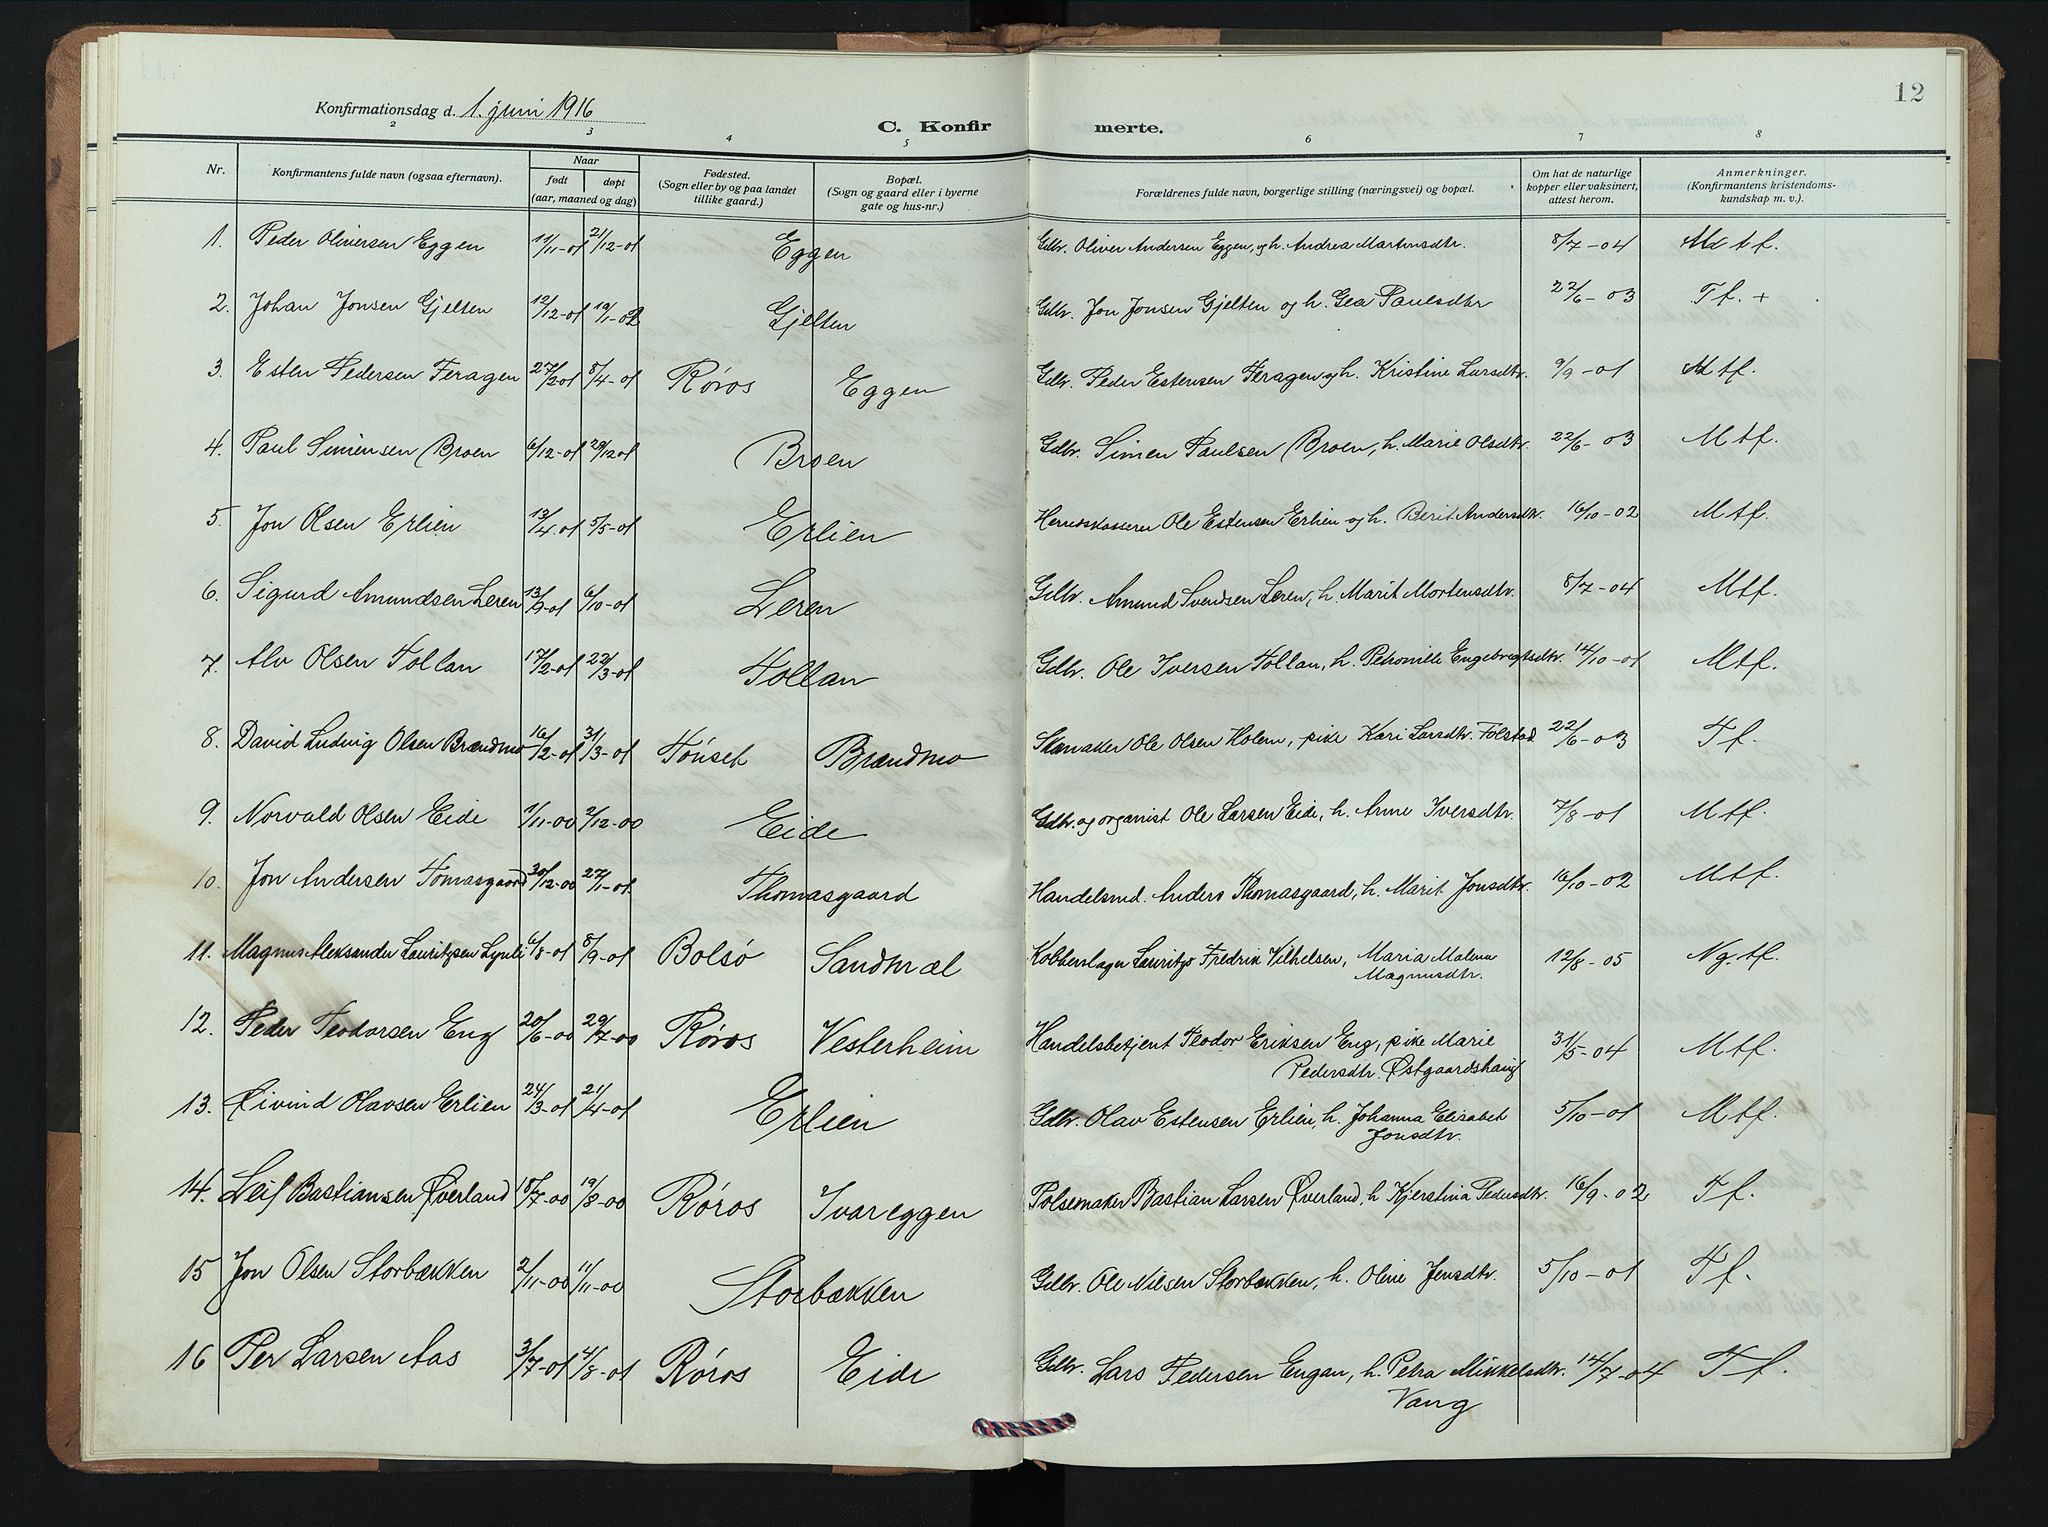 12
Konfirmationsdag d. 1. juni 1916
C. Konfirmerte.
2 3 4 5 6 7 8
Nr. Konfirmantens fulde navn (ogsaa efternavn). Naar født døpt (aar, maaned og dag) Fødested. (Sogn eller by og paa landet tillike gaard.) Bopæl. (Sogn og gaard eller i byerne gate og hus-nr.) Forældrenes fulde navn, borgerlige stilling (næringsvei) og bopæl. Om hat de naturlige kopper eller vaksinert, attest herom. Anmerkninger. (Konfirmantens kristendomskundskap m. v.).
1. Peder Oliversen Eggen 11/11-01 21/12-01 Eggen Gdbr. Oliver Andersen Eggen, og h. Andrea Martinsdtr. 8/7-04 Mtf.
2. Johan Jonsen Gjelten 12/12-01 19/1-02 Gjelten Gdbr. Jon Jonsen Gjelten og h. Gea Paulsdtr 22/6-03 Tf. +
3. Esten Pedersen Feragen 27/2-01 8/4-01 Røros Eggen Gdbr. Peder Estensen Feragen og h. Kristine Larsdtr. 9/9-01 Mtf.
4. Paul Simensen Broen 6/12-01 29/12-01 Broen Gdbr. Simen Paulsen Broen, h. Marie Olsdtr. 22/6-03 Mtf.
5. Jon Olsen Erlien 13/4-01 5/5-01 Erlien Herredskasserer Ole Estensen Erlien og h. Berit Andersdtr. 16/10-02 Mtf.
6. Sigurd Amundsen Leren 13/9-01 6/10-01 Leren Gdbr. Amund Svendsen Leren, h. Marit Mortensdtr. 8/7-04 Mtf.
7. Alv Olsen Tollan 17/2-01 22/3-01 Tollan Gdbr. Ole Iversen Tollan, h. Petronille Engebregtsdtr. 14/10-01 Mtf.
8. David Ludvig Olsen Brændmo 16/2-01 31/3-01 Tönset Brændmo Skomaker Ole Olsen Holem, pike Kari Larsdtr. Folstad 22/6-03 Tf.
9. Norvald Olsen Eide 1/11-00 2/12-00 Eide Gdbr. og organist Ole Larsen Eide, h. Anne Iversdtr. 7/8-01 Mtf.
10. Jon Andersen Tomasgaard 30/12-00 27/1-01 Thomasgaard Handelsmd. Anders Thomasgaard, h. Marit Jonsdtr. 16/10-02 Mtf.
11. Magnus Aleksander Lauritzsen Lynli 6/8-01 8/9-01 Bolsö Sandmæl Kobberslager Lauritz Fredrik Vilhelsen, Maria Malena Magnusdtr. 12/8-05 Ng. tf.
12. Peder Teodorsen Eng 20/6-00 29/7-00 Røros Vesterheim Handelsbetjent Teodor Eriksen Eng, pike Marie Pedersdtr. Østgaardshaug 31/5-04 Mtf.
13. Øivind Olavsen Erlien 24/3-01 21/4-01 Erlien Gdbr. Olav Estensen Erlien, h. Johanna Elisabet Jonsdtr. 5/10-01 Mtf.
14. Leif Bastiansen Øverland 18/7-00 19/8-00 Røros Ivareggen Pølsemaker Bastian Larsen Øverland, h Kjerstina Pedersdtr. 16/9-02 Tf.
15 Jon Olsen Storbækken 2/11-00 11/11-00 Storbækken Gdbr. Ole Nilsen Storbækken, h. Oline Jensdtr. 5/10-01 Tf.
16 Per Larsen Aas 3/7-01 4/8-01 Røros Eide Gdbr. Lars Pedersen Engan, h. Petra Mikkelsdtr. Vang 14/7-04 Tf.